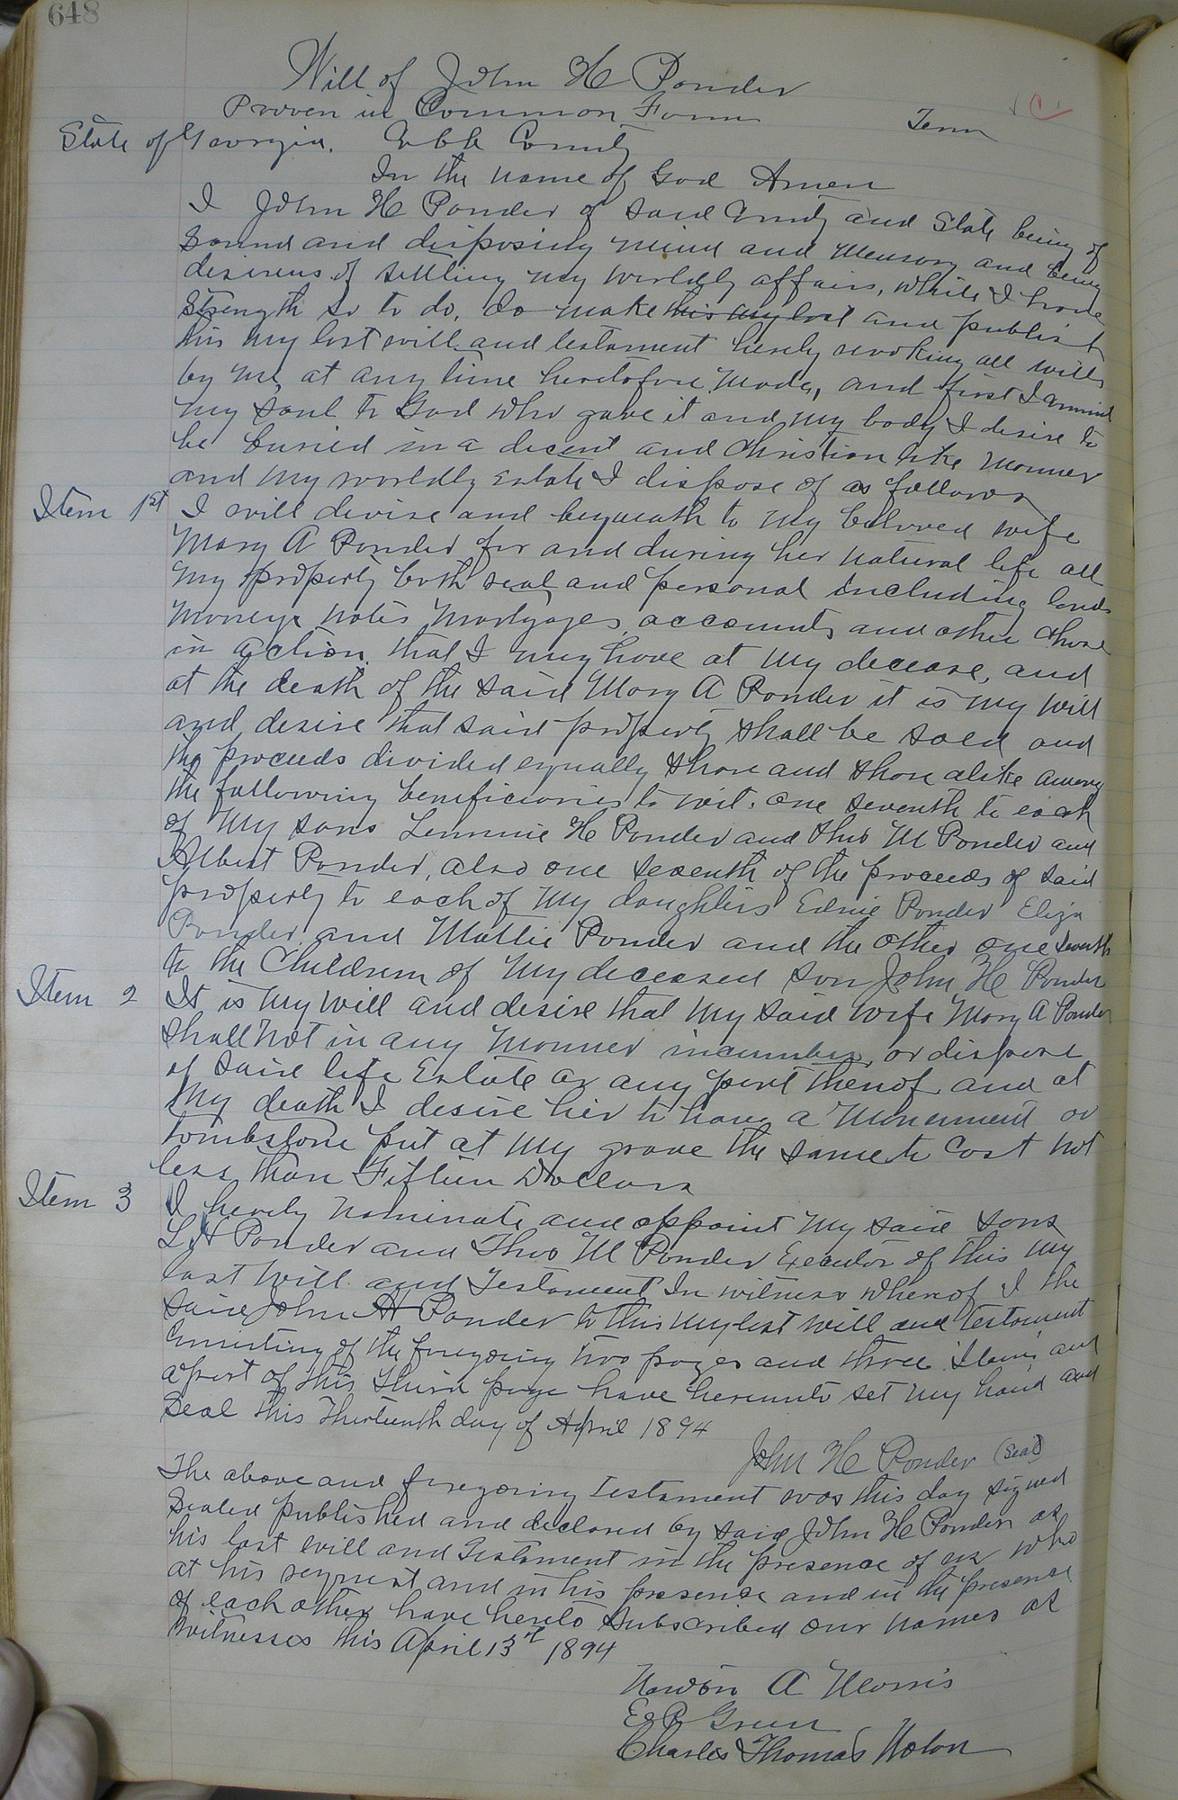 648
Will of John H Ponder
Proven in Common Form Term
State of Georgia. Cobb County
In the name of God Amen
I John H Ponder of said County and State being of
Sound and disposing mind and memory and being
desirous of settling my worldly affairs, while I have
Strength so to do, do make this my last and publish
this my last will and testament hereby revoking all wills
by me at any time heretofore made, and first I commit
my soul to God who gave it and my body I desire to
be buried in a decent and Christian like manner
and my worldly Estate I dispose of as follows
Item 1st I will devise and bequeath to my beloved wife
Mary A Ponder for and during her natural life all
my property both real and personal including lands
moneys notes mortgages accounts and other chose
in action that I may have at my decease, and
at the death of the said Mary A Ponder it is my will
and desire that said property shall be sold and
the proceeds divided equally share and share alike among
the following beneficiaries to wit. one seventh to each
of my sons Lemmie H Ponder and Thos M Ponder and
Albert Ponder, also one seventh of the proceeds of said
property to each of my daughters Ednie Ponder Eliza
Ponder and Mattie Ponder and the other one seventh
to the Children of my deceased son John H Ponder
Item 2 It is my will and desire that my said wife Mary A Ponder
shall not in any manner incumber or dispose
of said life Estate or any part thereof and at
my death I desire her to have a monument or
tombstone put at my grave the same to cost not
less than Fifteen Dollars
Item 3 I hereby nominate and appoint my said sons
L H Ponder and Thos M Ponder Executor of this my
last will and Testament In witness whereof I the
said John H Ponder to this my last will and testament
Consisting of the foregoing two pages and three Items and
a part of this third page have hereunto set my hand and
Seal this Thirteenth day of April 1894
John H Ponder (Seal)
The above and foregoing Testament was this day signed
Sealed published and declared by said John H Ponder as
his last will and Testament in the presence of us who
at his request and in his presence and in the presence
of each other have hereto subscribed our names as
witnesses this April 13th 1894
Newton A Morris
E P Green
Charles Thomas Nolan